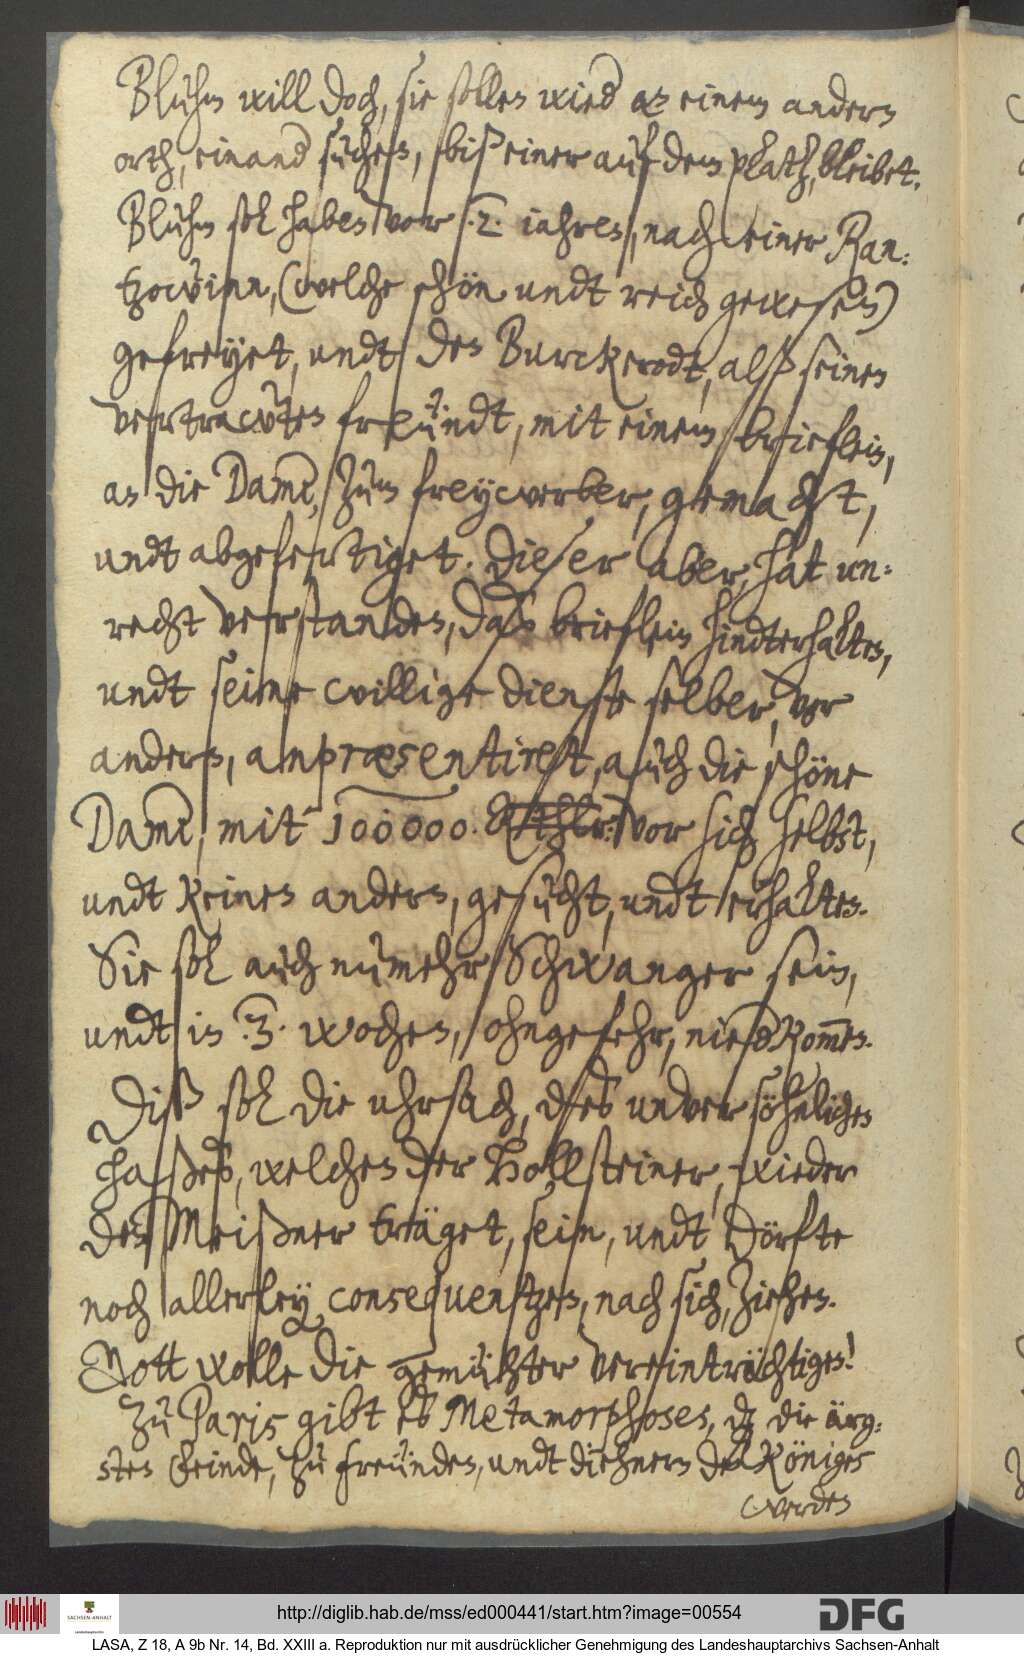 Bluhm will doch, sie sollen wied an einem andern
orth, einand suchen, biß einer auf dem platz, bleibet.
Bluhm sol haben vor .2. iahren, nach einer Ran:
tzowinn, (welche schön undt reich gewesen)
gefreyet, undt den Burckerodt, alß seinen
vertrawten freündt, mit einem brieflein,
an die Dame, zum freywerber, gemacht,
undt abgefertiget. Dieser aber, hat un:
recht verstanden, daß brieflein hindterhalten,
undt seine willige dienste selber, vor
andern, anpræsentiret, auch die schöne
Dame, mit 100000. Rthlr: vor sich selbst,
undt keinen andern, gesucht, undt erhalten.
Sie sol auch numehr Schwanger sein,
undt in .3. wochen, ohngefehr, niedkommen.
Diß sol die uhrsach, des unversöhnlichen
haßes, welchen der Hollsteiner, wieder
den Meißner träget, sein, undt dörfte
noch allerley consequentzen, nach sich, ziehen.
Gott wolle die gemühter vereinträchtigen!
Zu Paris gibt es Metamorphoses, dz die ärg:
sten feinde, zu freünden, undt diehnern des Königes
werden
http://diglib.hab.de/mss/ed000441/start.htm?image=00554
SACHSEN-ANHALT
Landeshauptarchiv
DFG
LASA, Z 18, A 9b Nr. 14, Bd. XXIII a. Reproduktion nur mit ausdrücklicher Genehmigung des Landeshauptarchivs Sachsen-Anhalt